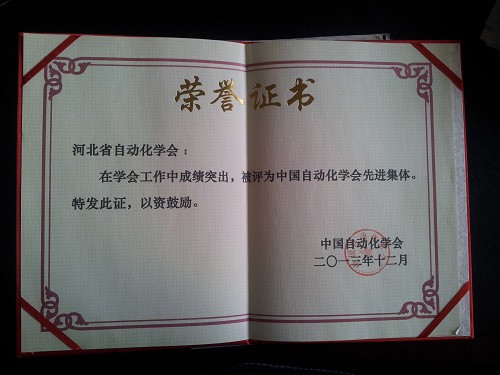 荣誉证书
河北省自动化学会：
在学会工作中成绩突出，被评为中国自动化学会先进集体。
特发此证，以资鼓励。
中国自动化学会
二〇一三年十二月